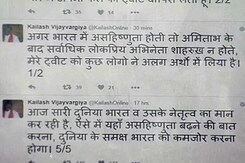 2/2
Kailash Vijayvargiya @KailashOnline
अगर भारत में असहिष्णुता होती तो अमिताभ के
बाद सर्वाधिक लोकप्रिय अभिनेता शाहरुख न होते,
मेरे ट्वीट को कुछ लोगो ने अलग अर्थो में लिया है।
1/2
Kailash Vijayvargiya @KailashOnline 17h
आज सारी दुनिया भारत व उसके नेतृत्व का मान
कर रही है, ऐसे में यहाँ असहिष्णुता बढने की बात
करना, दुनिया के समक्ष भारत को कमजोर करना
होगा। 5/5